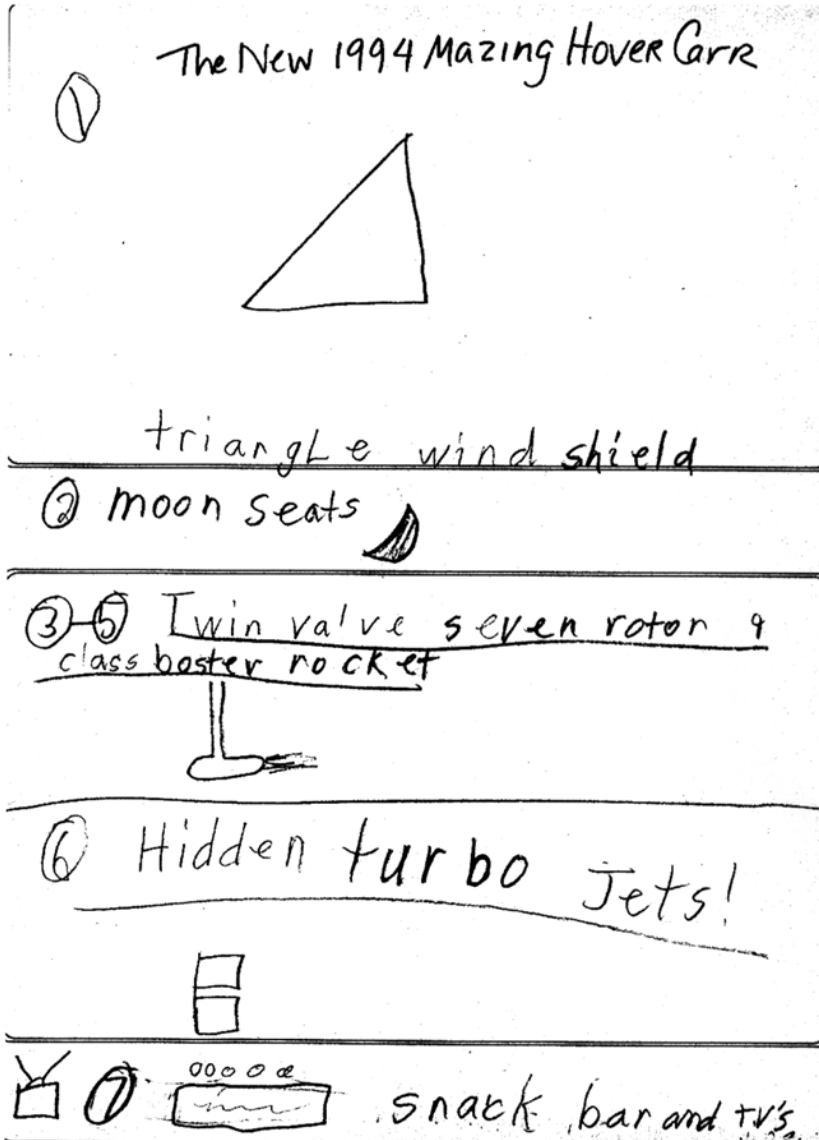 The New 1994 Mazing Hover Carr
1
triangle wind shield
2 moon seats
3-5 Twin valve seven rotor 9
class boster rocket
6 Hidden turbo Jets!
7 snack bar and tv's.